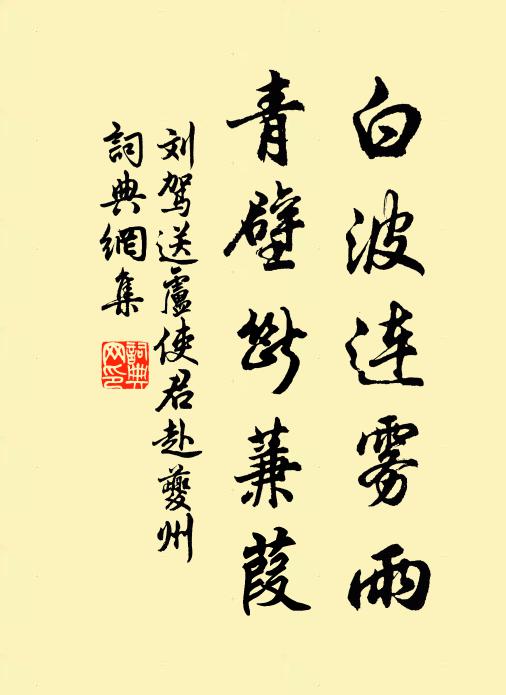 白波连雾雨
青壁断蒹葭
刘驾送盧使君赴夔州
詞典網集
詞典网印